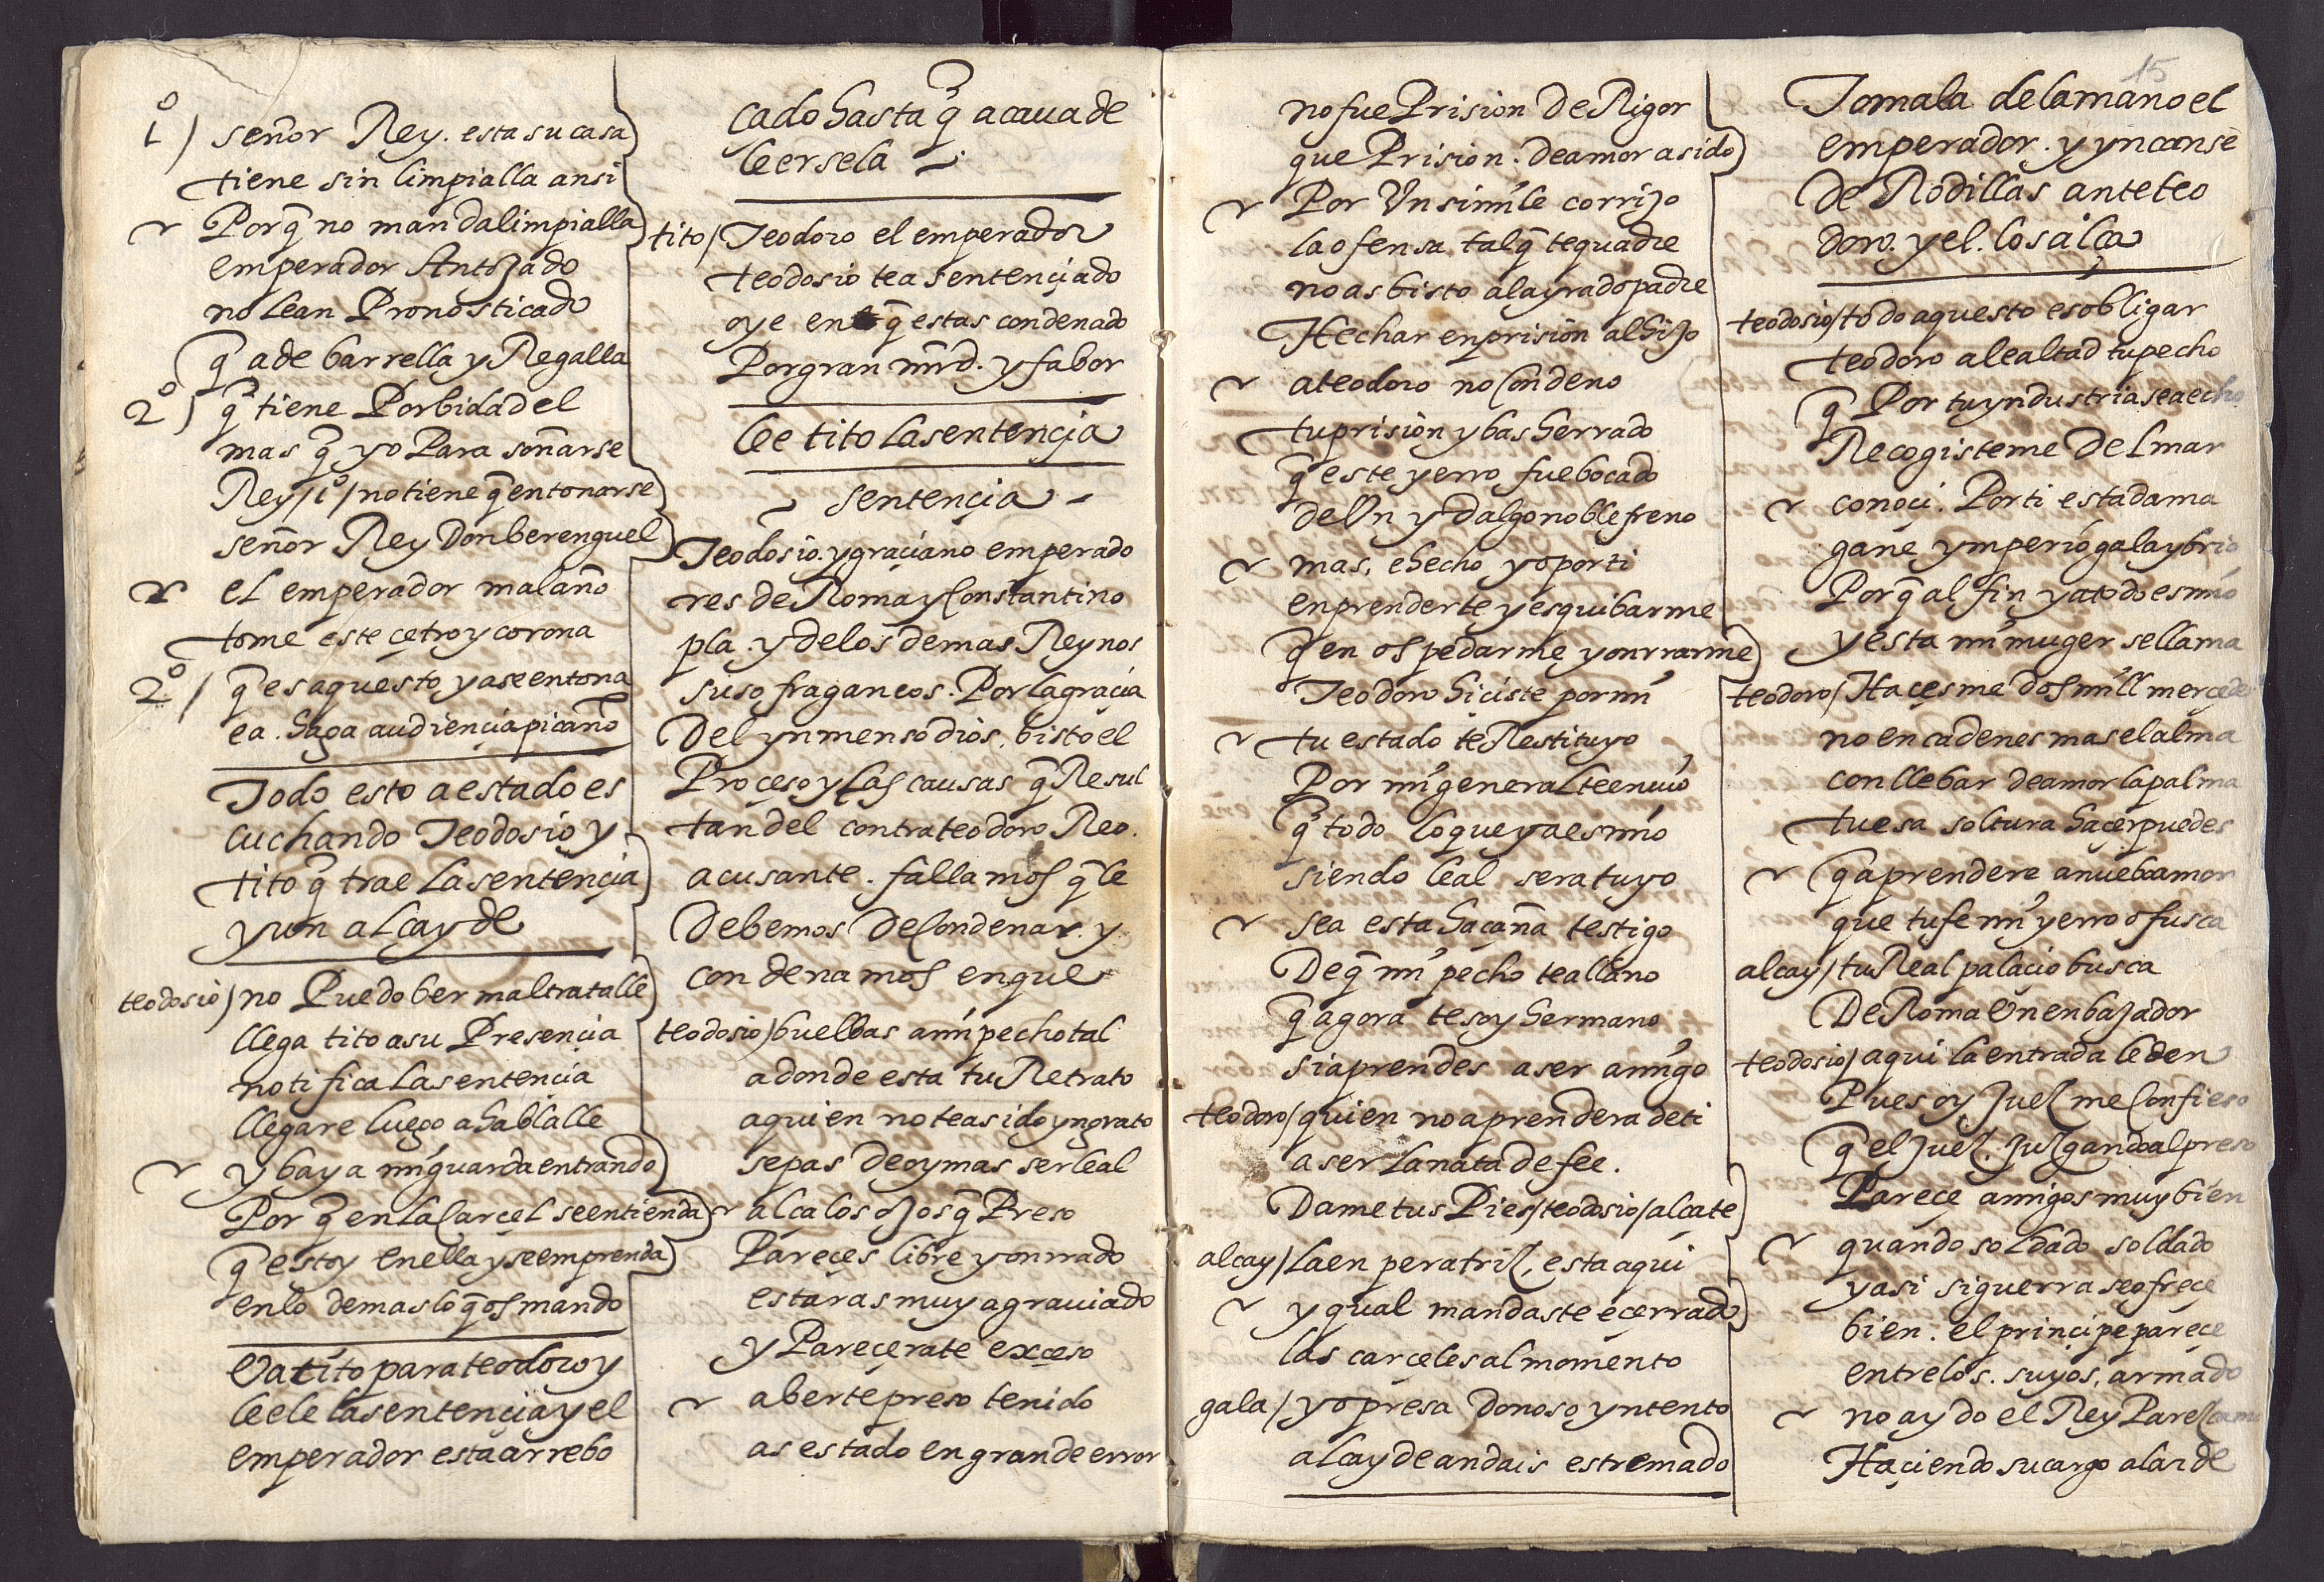 1º / señor Rey. esta su casa
tiene sin limpialla ansi
Porq̃ no manda limpialla
emperador Antojado
no lean Pronosticado
q̃ a de barrella y Regalla
2º / q̃ tiene Por bida del
mas q̃ yo Para soñarse
Rey / 1º / no tiene q̃ entonarse
señor Rey Don berenguel
el emperador mal año
tome este çetro y corona
2º / q̃ es aquesto ya se entona
ea. haga audiençia picaño
Todo esto a estado es
cuchando Teodosio y
tito q̃ trae La sentençia
y un alcayde
teodosio / no Puedo ber maltratalle
llega tito a su Presençia
notifica La sentençia
llegare luego a hablalle
y baya mi guarda entrando
Por q̃ en La Carcel se entienda
q̃ estoy en ella y se emprenda
en lo demas lo q̃ os mando
Va tito para teodoro y
leele la sentençia y el
emperador esta arrebo
çado hasta q̃ acaua de
leersela
tito / Teodoro el emperador
teodosio te a sentençiado
oye en q̃ estas condenado
Por gran mrd. y fabor
Lee tito la sentençia
sentençia
Teodosio. y graçiano emperado
res de Roma y Constantino
pla. y de los demas Reynos
sufraganeos. Por la graçia
Del ynmenso dios. bisto el
Proçeso y las causas q̃ Resul
tan del contra teodoro Reo.
acusante. fallamos q̃ le
Debemos De Condenar. y
condenamos en que
teodosio / buelbas a mi pecho tal
a donde esta tu Retrato
a quien no te a sido yngrato
sepas de oy mas ser leal
alça los ojos q̃ Preso
Pareçes libre y onrrado
estaras muy agrauiado
y Pareçerate exçeso
aberte preso tenido
as estado en grande error
15
no fue Prision De Rigor
que Prision. de amor a sido
Por Un simile corrijo
la ofensa tal q̃ te quadre
no as bisto al ayrado padre
Hechar en prision al hijo
a teodoro no Condeno
tu prision y bas herrado
q̃ este yerro fue bocado
de Un ydalgo noble freno
mas. e hecho yo por ti
en prenderte y esquibarme
q̃ en ospedarme y onrrarme
Teodoro hiçiste por mi
tu estado te Restituyo
Por mi general te enuio
q̃ todo lo que ya es mio
siendo leal sera tuyo
sea esta haçaña testigo
De q̃ mi pecho te allano
q̃ agora te soy hermano
si aprendes a ser amigo
teodoro / quien no aprendera de ti
a ser La nata de fee.
Dame tus Pies / teodosio / alçate
alcay / La enperatriz, esta aqui
y qual mandaste e çerrado
las carçeles al momento
gala / yo presa Donoso yntento
alcayde andais estremado
Tomala de la mano el
emperador. y yncanse
De Rodillas ante teo
doro. y el. los alça
teodosio / todo aquesto es obligar
teodoro a lealtad tu pecho
q̃ Por tu yndustria sea echo
Recogisteme Del mar
conoçi. Por ti esta dama
gane ymperio gala y brio
Porq̃ al fin ya todo es mio
y esta mi muger se llama
teodoro / Haçesme dos mill merçedes
no encadenes mas el alma
con llebar de amor la palma
tu esa soltura haçer puedes
q̃ aprendere a nuebo amor
que tu fe mi yerro ofusca
alcay / tu Real palaçio busca
De Roma Un enbajador
teodosio / aqui la entrada le den
Pues oy Juez me Confieso
q̃ el Juez. Juzgando al preso
Pareçe amigos muy bien
quando soldado soldado
y asi si guerra se ofreçe
bien. el prinçipe pareçe
entre los. suyos. armado
no ay do el Rey
Haçiendo su cargo alarde